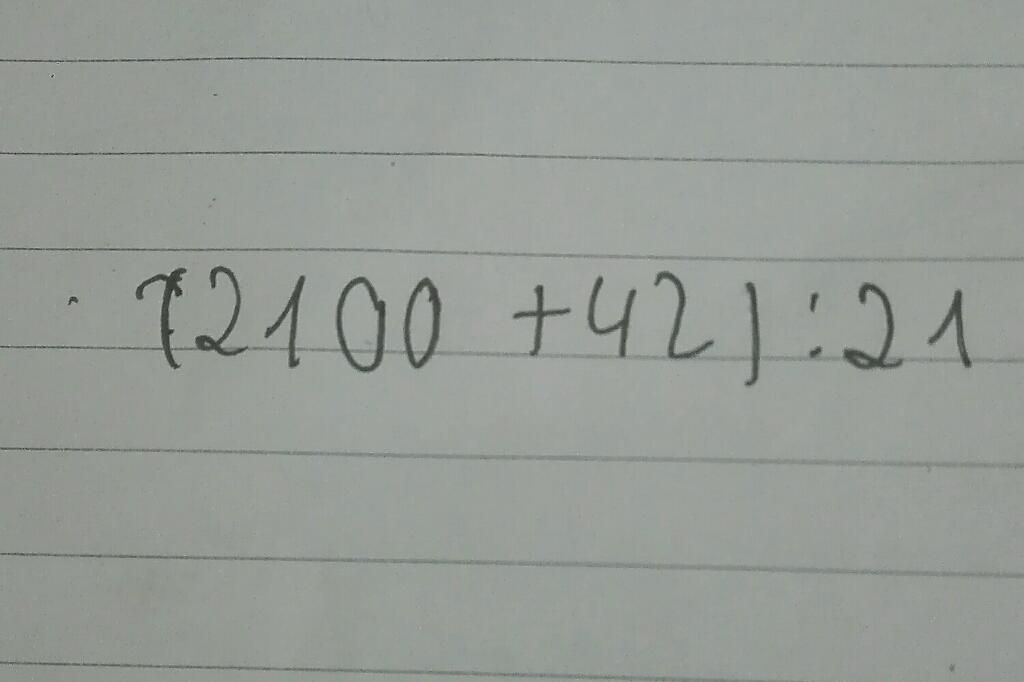 (2100 + 42) : 21